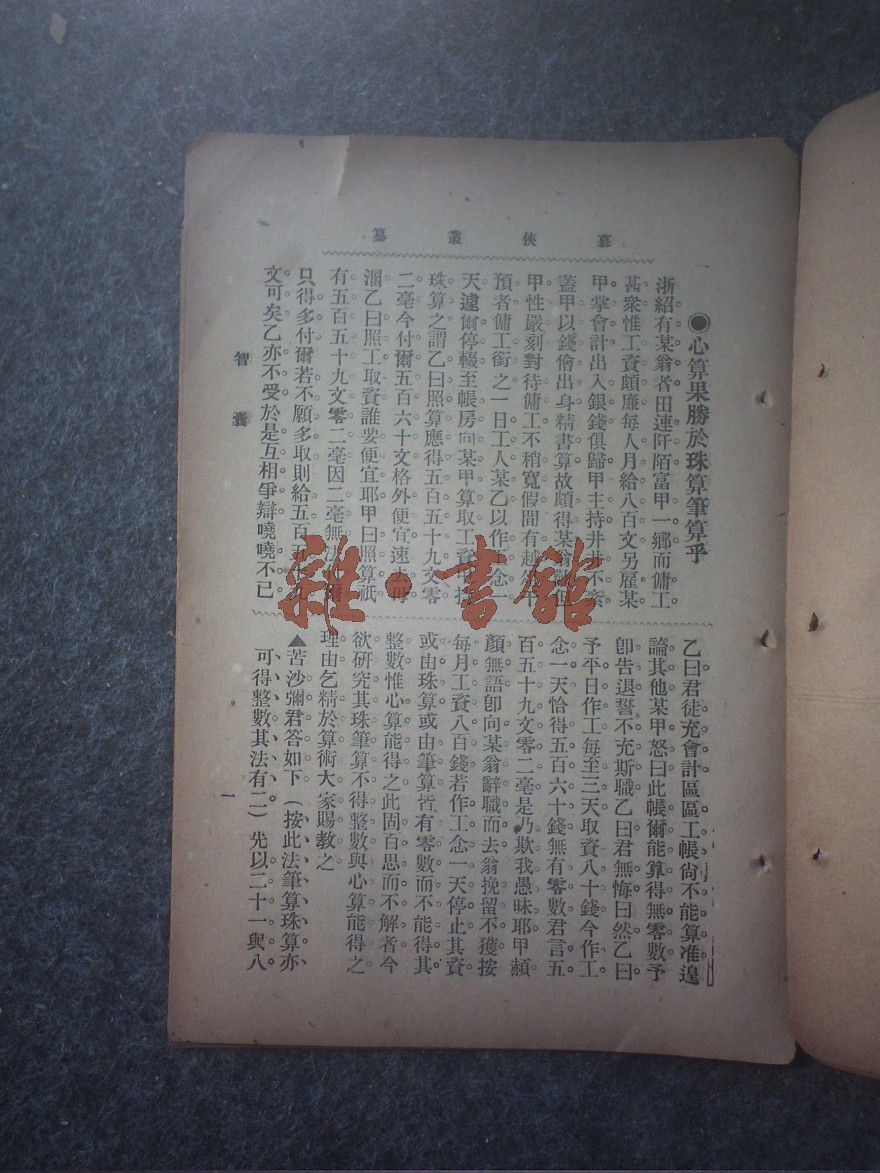 墓俠叢纂
●心算果勝於珠算筆算乎
浙紹有某翁者田連阡陌富甲一鄉而傭工
甚衆惟工資頗廉每人月給八百文另雇某
甲掌會計出入銀錢俱歸甲主持井井不紊
蓋甲以錢儈出身精書算故頗得某翁歡但
甲性嚴刻對待傭工不稍寬假間有越
預者傭工銜之一日工人某乙以作工念一
天遽爾停輟至帳房向某甲算取工資甲按
珠算之謂乙曰照算應得五百五十九文零
二毫今付爾五百六十文格外便宜速去毋
溷乙曰照工取資誰要便宜耶甲曰照算祇
有五百五十九文零二毫因二毫無法
只得多付爾若不願多取則給五百五十九
文可矣乙亦不受於是互相爭辯嘵嘵不已
乙曰君徒充會計區區工帳尙不能算准遑
論其他某甲怒曰此帳爾能算得無零數予
卽告退誓不充斯職乙曰君無悔曰然乙曰
予平日作工每至三天取資八十錢今作工
念一天恰得五百六十錢無有零數君言五
百五十九文零二毫是乃欺我愚昧耶甲赧
顏無語卽向某翁辭職而去翁挽留不獲按
每月工資八百錢若作工念一天停止其資
或由珠算或由筆算皆有零數而不能得其
整數惟心算能得之此固百思而不解者今
欲硏究其珠筆算不得整數與心算能得之
理由乞精於算術大家賜教之
▲苦沙彌君答如下(按此法筆算珠算亦
可得整數其法有二)先以二十一與八
智囊
一
雜·書館